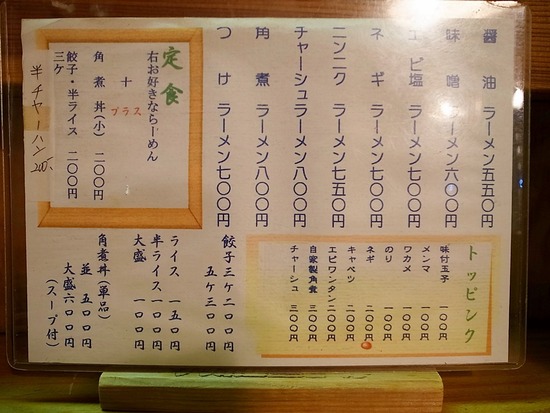 醤油 ラーメン 五五〇円
味噌 ラーメン 六〇〇円
エビ塩 ラーメン 七〇〇円
ネギ ラーメン 七〇〇円
ニンニク ラーメン 七五〇円
チャーシュウラーメン 八〇〇円
角煮 ラーメン 八〇〇円
つけ ラーメン 七〇〇円
定食
右お好きならーめん
十
プラス
角煮丼(小) 二〇〇円
餃子・半ライス 二〇〇円
三ケ
半チャーハン 200-
トッピンク
味付玉子 一〇〇円
メンマ 一〇〇円
ワカメ 一〇〇円
のり 一〇〇円
キャベツ 一〇〇円
ネギ 二〇〇円
エビワンタン 二〇〇円
自家製角煮 三〇〇円
チャーシュ 三〇〇円
餃子 三ケ 二〇〇円
五ケ 三〇〇円
ライス 一五〇円
半ライス 一〇〇円
大盛 一〇〇円
角煮丼(単品)
並 五〇〇円
大盛 六〇〇円
(スープ付)